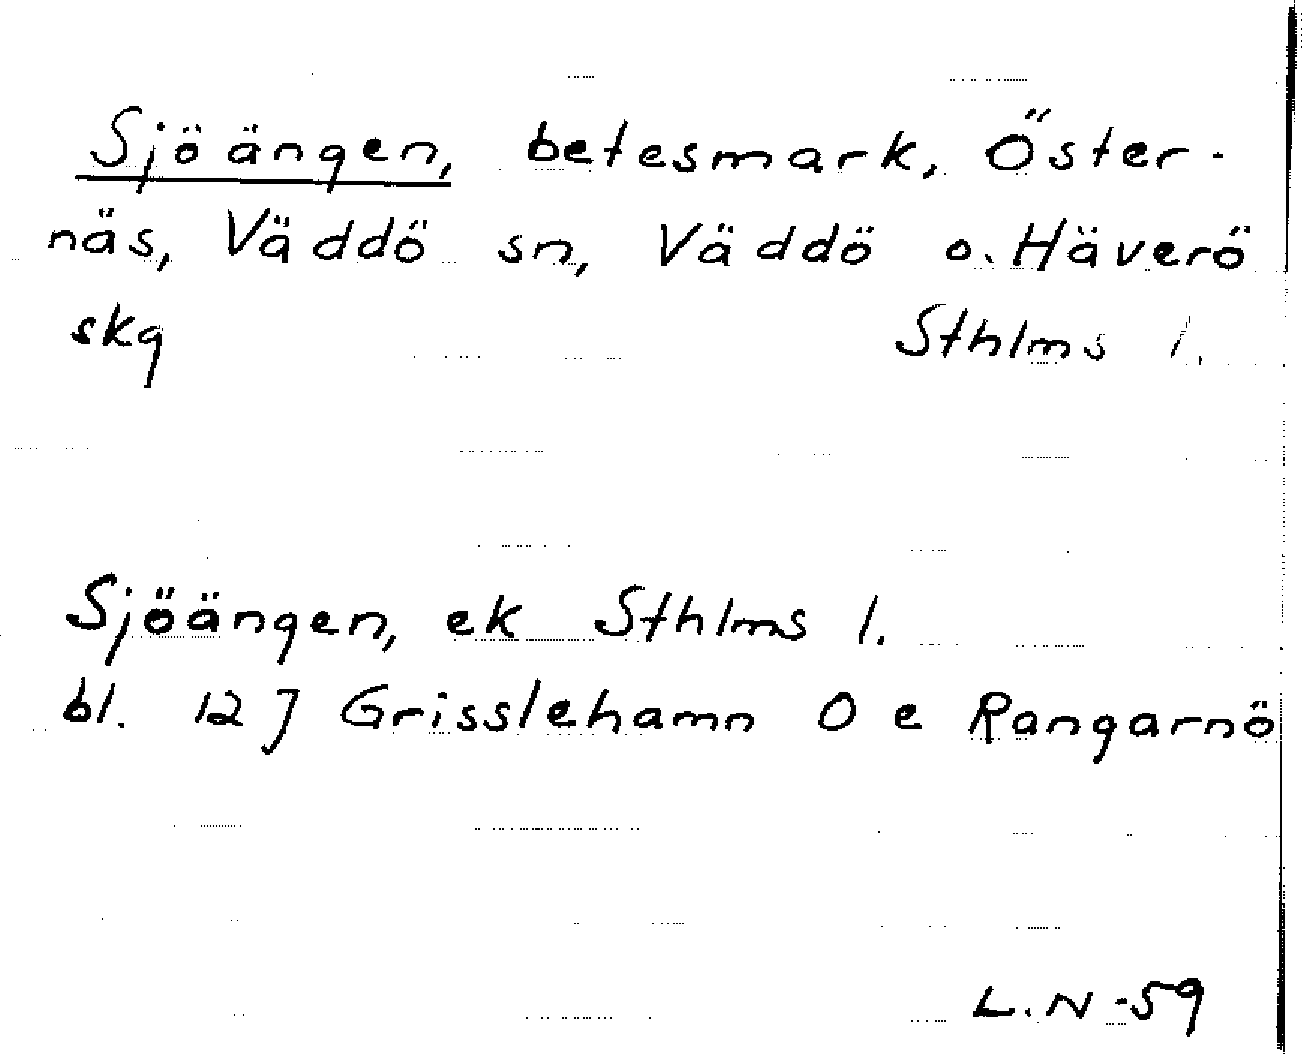 Sjöängen, betesmark, Öster-
näs, Väddö sn, Väddö o. Häverö
skg Sthlms l.
Sjöängen, ek Sthlms l.
bl. 12 J Grisslehamn O e Rangarnö
L.N -59